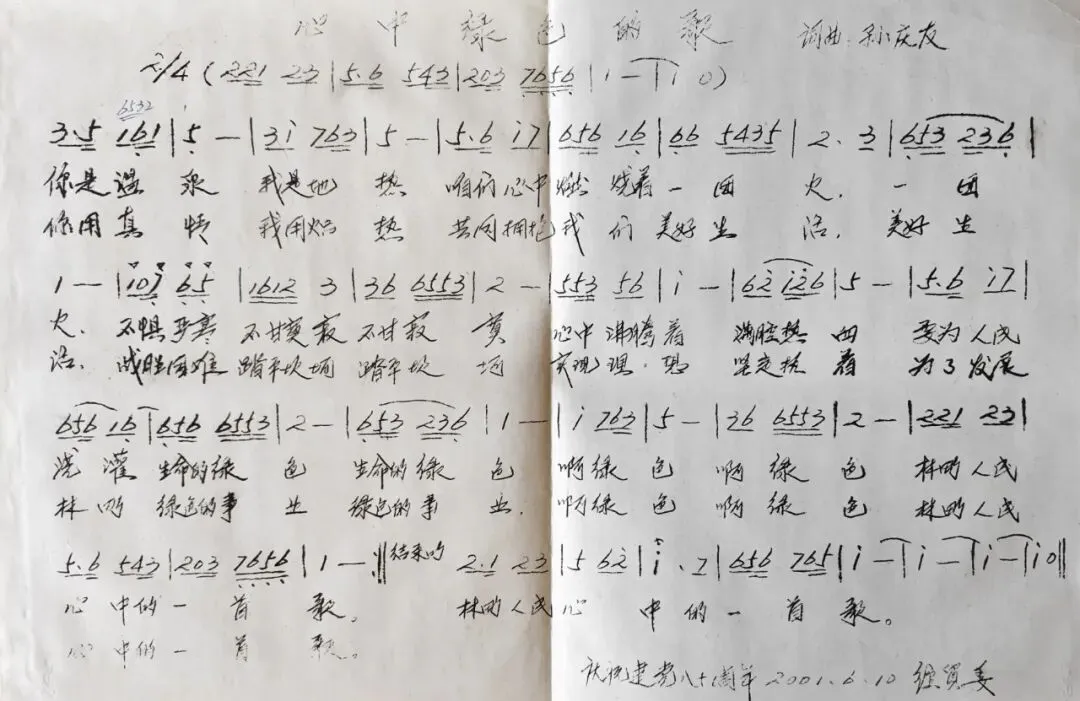 心中绿色的歌 词曲 孙庆友
2/4 (221 23|5.6 543|203 7656|i —|i 0)
6532
3.5 161|5 —|3i 763|5 —|5.6 i7|656 16|66 5435|2. 3|653 236|
你是温泉 我是地热 咱们心中燃烧着一团火. 一团
你用真情 我用炽热 共同拥抱我们美好生活. 美好生
1 —|107 65|1612 3|36 6553|2 —|553 56|i —|62 i26|5 —|5.6 i7|
火. 不惧严寒 不甘寞寂 不甘寂寞 心中沸腾着 满腔热血 要为人民
活. 战胜困难 踏平坎坷 踏平坎坷 实现理想 坚定执着 为了发展
656 16|656 6553|2 —|653 236|1 —|i 763|5 —|36 6553|2 —|221 23|
浇灌 生命的绿色 生命的绿色 啊绿色 啊绿色 林的人民
林的 绿色的事业 绿色的事业. 啊绿色 啊绿色 林的人民
5.6 543|203 7656|1 —:‖结束句 2.1 23|5 62|i . 7|656 765|i —|i —|i —|i 0‖
心中的一首歌。 林的人民心中的一首歌。
心中的一首歌。
庆祝建党八十周年 2001.6.10 经贸委